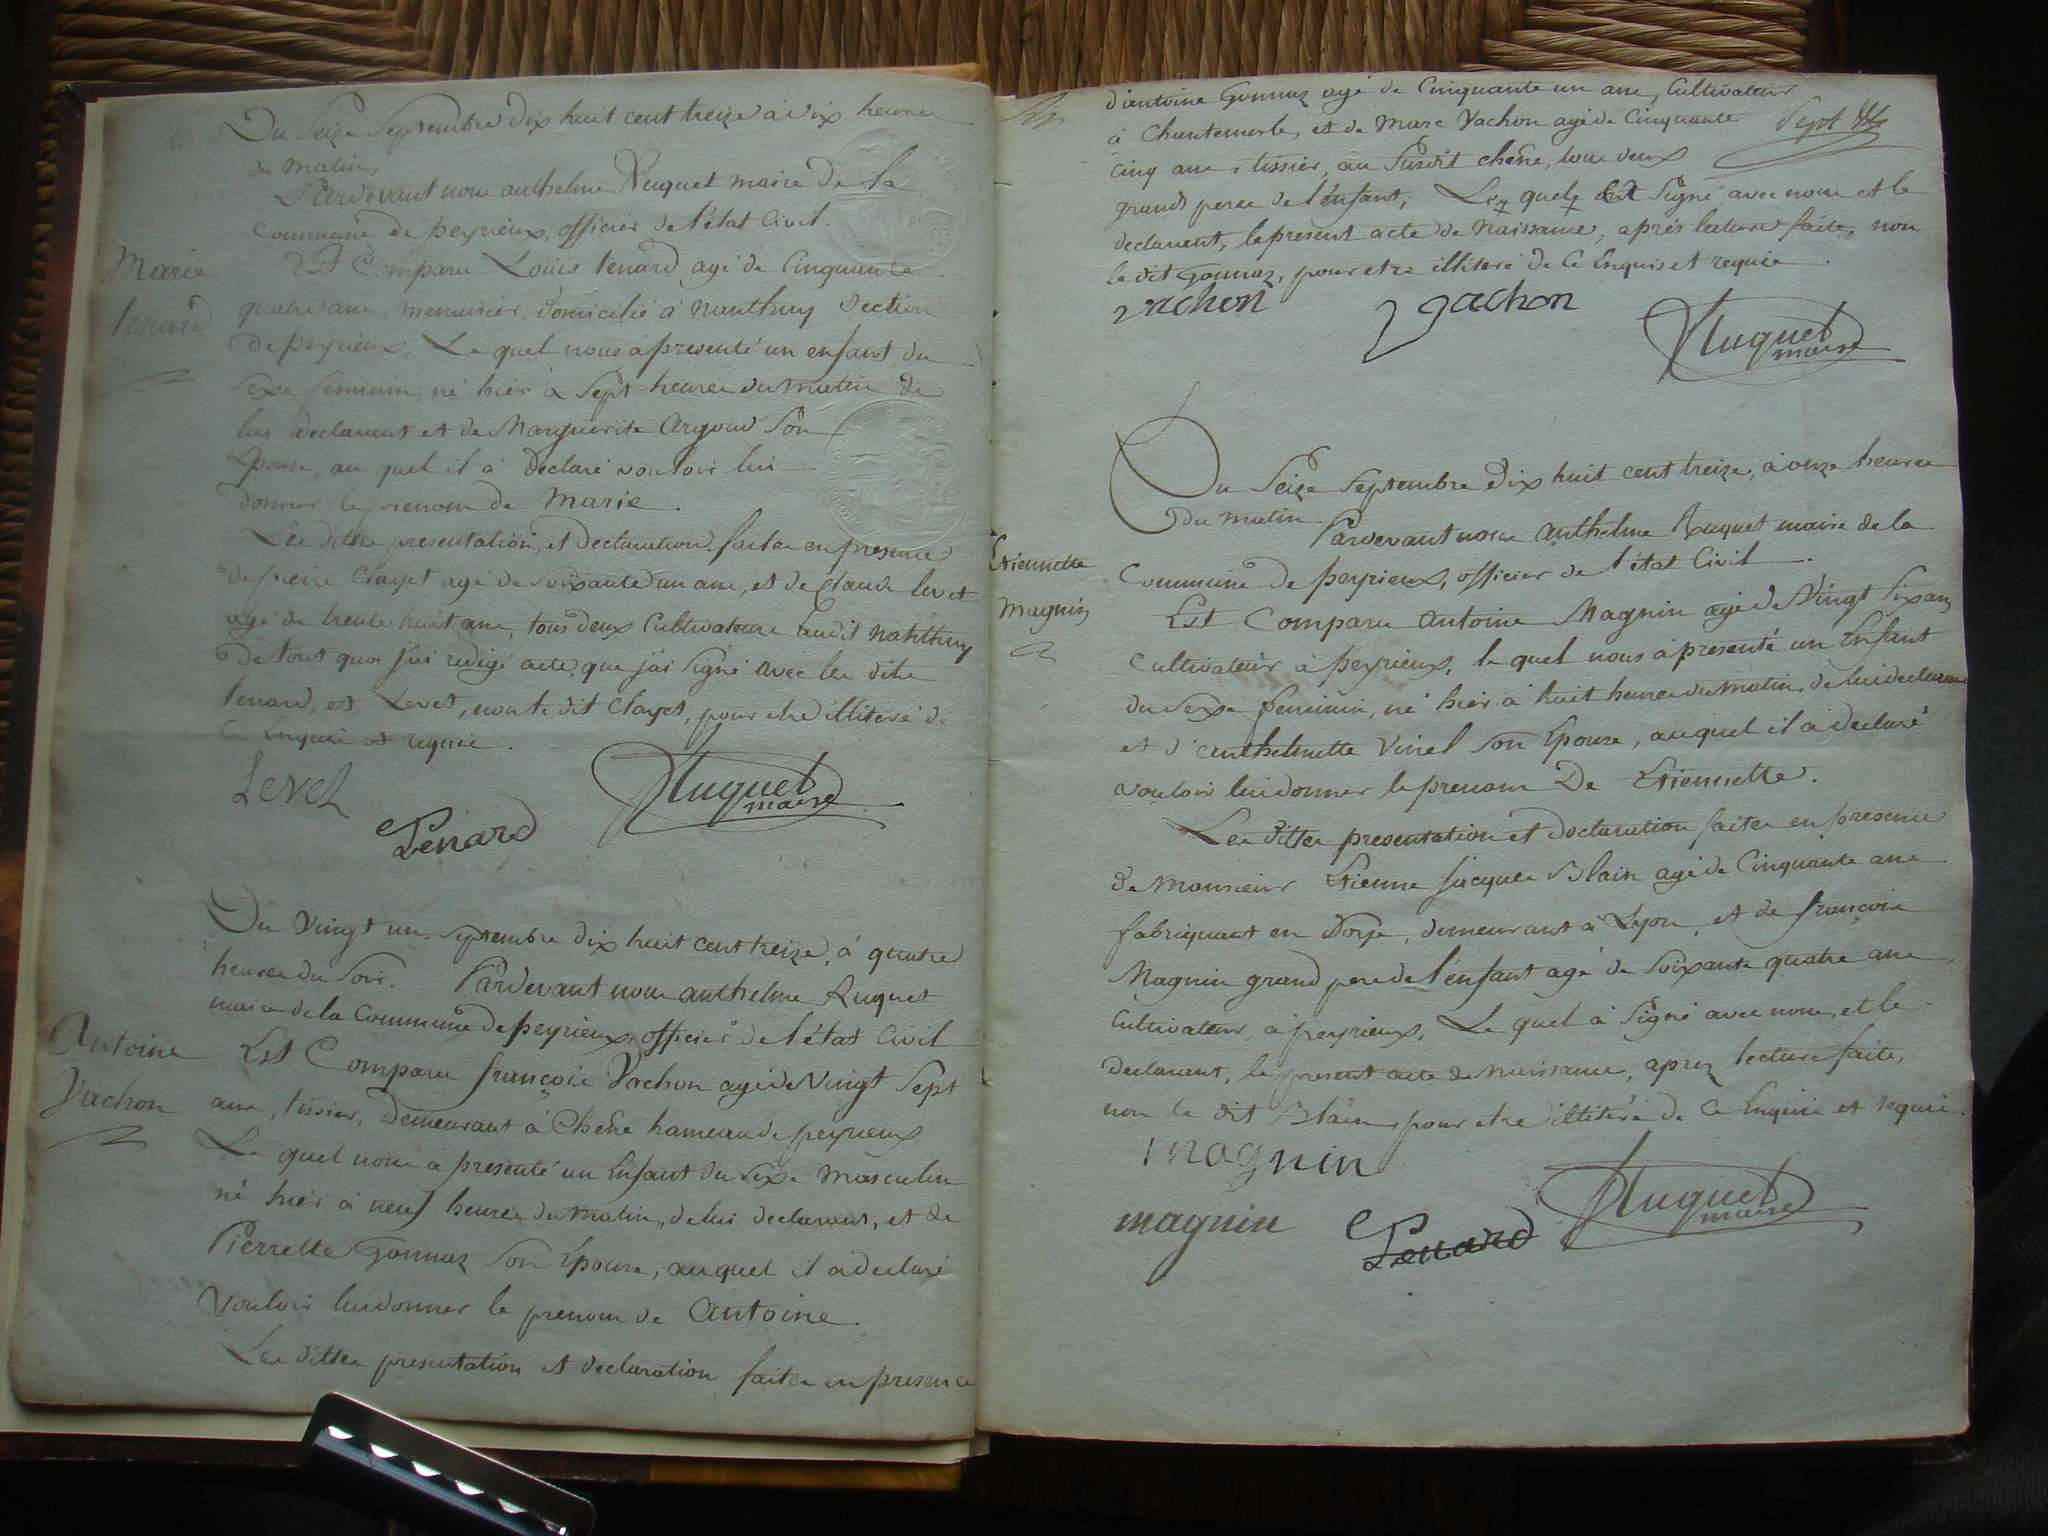 Du Seize Septembre dix huit cent treize à dix heures
du matin
Pardevant nous anthelme Ruquet maire de la
Commune de peyrieux, officier de l'état Civil.
Marie
tenard
Est Comparu Loüis tenard agé de Cinquante
quatre ans, menuisier, domicilié à nanthuy Section
de peyrieux, Le quel nous à presenté un enfant du
Sexe feminin, né hier à Sept heures du matin de
lui declarant et de Marguerite argoud Son
Epouse, au quel il à declaré vouloir lui
donner le prenom de Marie.
Les dittes presentation, et declaration faites en presence
de pierre Clayet agé de Soixante un ans, et de Claude levet
agé de trente huit ans, tous deux Cultivateurs audit nahthuy
De tout quoi j'ai redigé acte, que j'ai Signé avec les dits
tenard, et Levet, non le dit Clayet, pour etre illiteré de
Ce Enquis et requis.
Levet
Tenard
Ruquet
maire
Du Vingt un Septembre dix huit cent treize, à quatre
heures du Soir. Pardevant nous anthelme Ruquet
maire de la Commune de peyrieux, officier de l'état Civil
Antoine
Vachon
Est Comparu françois Vachon agé de Vingt Sept
ans, tissier, demeurant à Chêne hameau de peyrieux,
Le quel nous à presenté un Enfant du Sexe Masculin
né hier à neuf heures du matin, de lui declarant, et de
Pierrette Gonnaz Son Epouse, auquel il à declaré
Vouloir lui donner le prenom de antoine.
Les dittes presentation et declaration faites en presence
d'antoine Gonnaz agé de Cinquante un ans, Cultivateur
à Chantemerle, et de Marc Vachon agé de Cinquante
Sept
cinq ans, tissier, au Susdit chêne, tous deux
grands peres de l'enfant; Lez quels ont Signé avec nous et le
declarant, le present acte de Naissance, aprés lecture faite, non
le dit Gonnaz, pour etre illiteré de Ce Enquis et requis.
vachon
Vachon
Ruquet
maire
Du Seize Septembre dix huit cent treize, à onze heures
du matin
Pardevant nous anthelme Ruquet maire de la
Commune de peyrieux, officier de l'état Civil.
Etiennette
magnin
Est Comparu antoine Magnin agé de Vingt Six ans
Cultivateur à peyrieux, le quel nous à presenté un Enfant
du Sexe feminin, né hier à huit heures du matin, de lui declarant
et d'anthelmette Vinel Son Epouse, auquel il à declaré
vouloir lui donner le prenom De Etiennette.
Les dittes presentation et declaration faites en presence
de Monsieur Etienne Jacques Blain agé de Cinquante ans
fabriquant en dorge, demeurant à Lyon, et de françois
Magnin grand pere de l'enfant agé de Soixante quatre ans,
Cultivateur à peyrieux, Le quel à Signé avec nous, et le
declarant, le present acte de Naissance, aprez lecture faite,
non le dit Blain pour etre illiteré de Ce Enquis et requis.
magnin
magnin
Tenard
Ruquet
maire